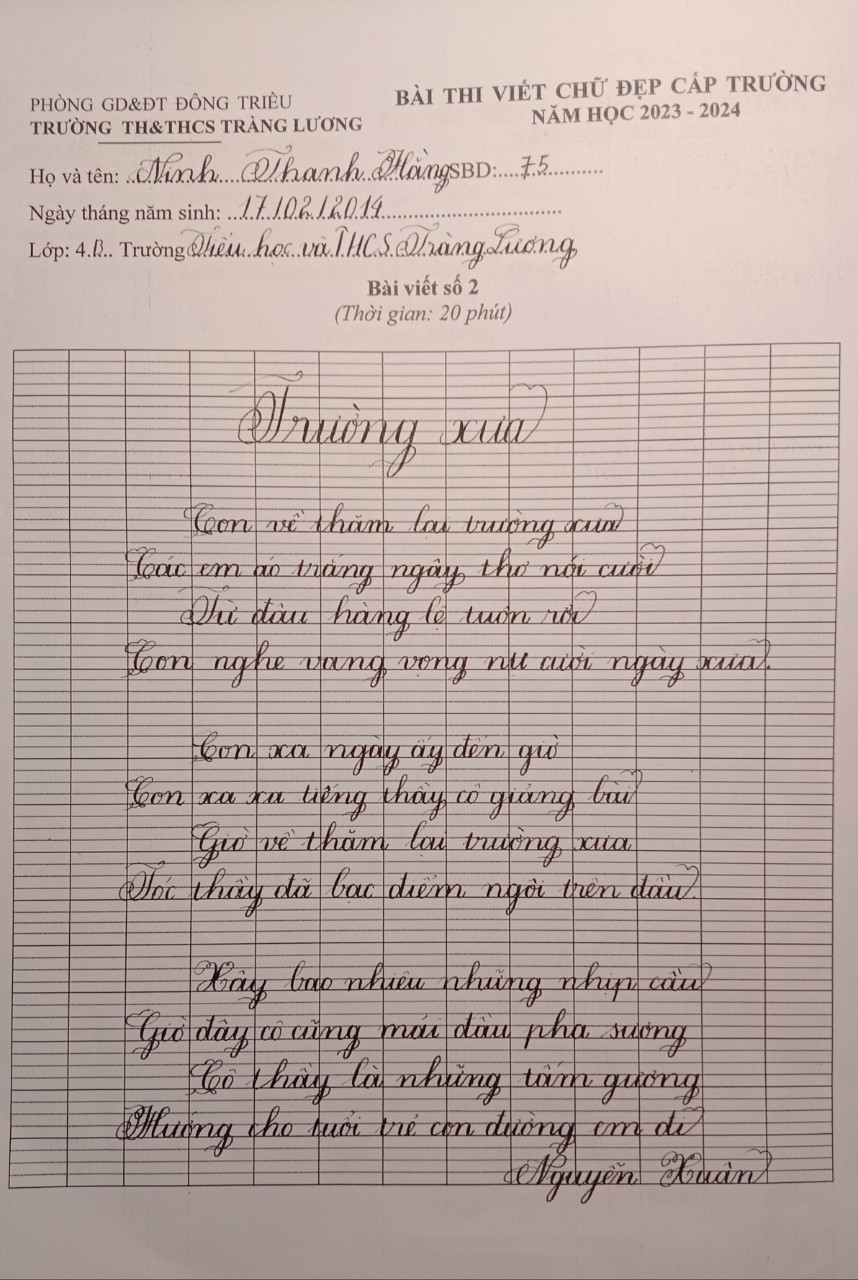 PHÒNG GD&ĐT ĐÔNG TRIỀU
TRƯỜNG TH&THCS TRÀNG LƯƠNG
BÀI THI VIẾT CHỮ ĐẸP CẤP TRƯỜNG
NĂM HỌC 2023 - 2024
Họ và tên: ..Ninh....Thanh..Hằng SBD:....75...........
Ngày tháng năm sinh: ..17/02/2014.................................
Lớp: 4.B.. Trường Tiểu học và THCS Tràng Lương
Bài viết số 2
(Thời gian: 20 phút)
Trường xưa
Con về thăm lại trường xưa
Các em áo trắng ngây thơ nói cười
Từ đâu hàng lệ tuôn rơi
Con nghe vang vọng nụ cười ngày xưa.
Con xa ngày ấy đến giờ
Con xa xa tiếng thầy cô giảng bài
Giờ về thăm lại trường xưa
Tóc thầy đã bạc điểm ngôi trên đầu.
Xây bao nhiêu những nhịp cầu
Giờ đây cô cũng mái đầu pha sương
Cô thầy là những tấm gương
Hướng cho tuổi trẻ con đường em đi
Nguyễn Xuân